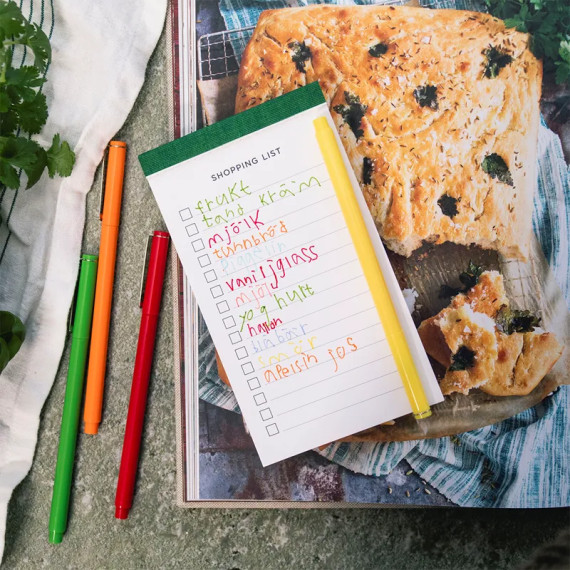 SHOPPING LIST
frukt
tand kräm
mjölk
tunnbröd
vaniljglass
mjöl
yog hurt
blåbär
smör
apelsin jos